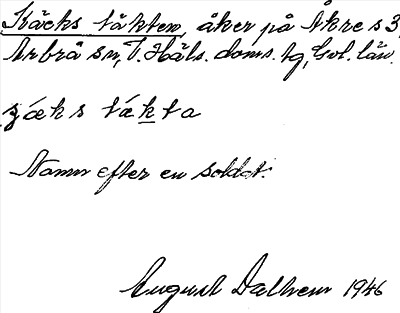 Käcks täkten, åker på Åkre s3,
Arbrå sn, V. Häls. doms. tg, Gvl. län.
zæks tækta
Namn efter en soldat.
August Dalhem 1946